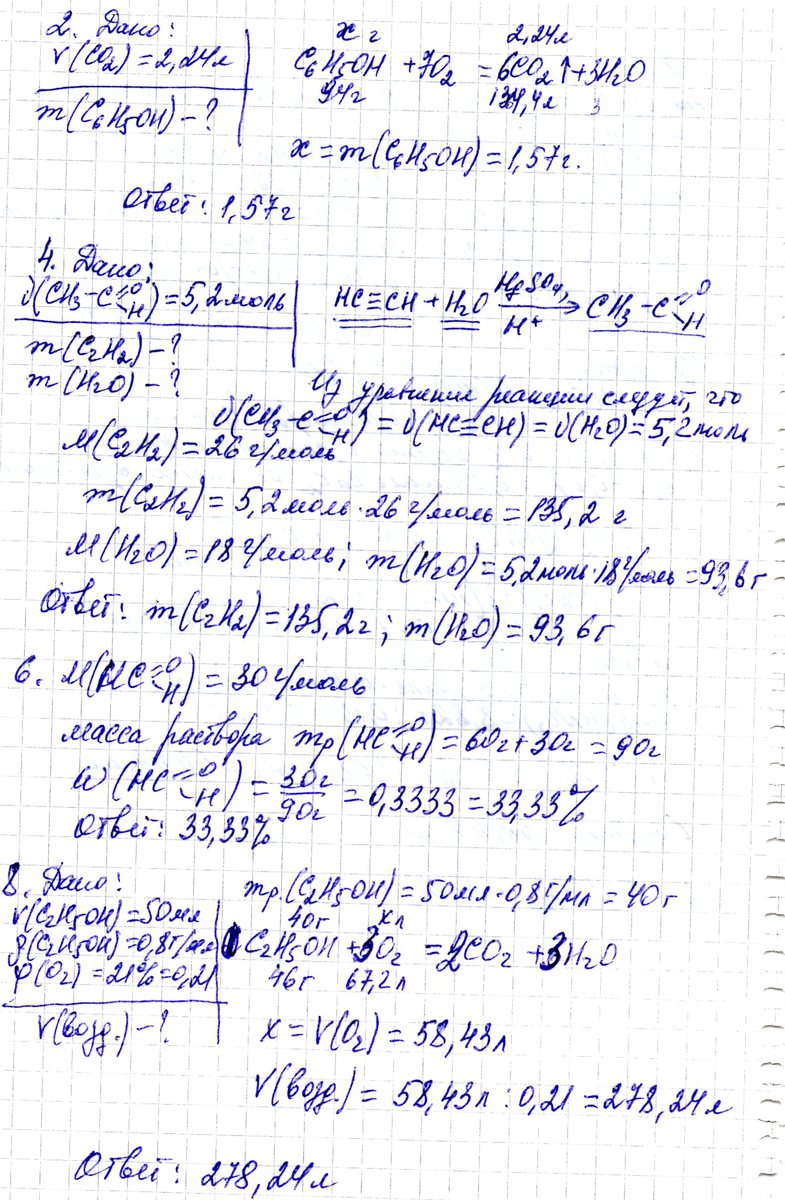 2. Дано:
V(CO2) = 2,24л
m(C6H5OH) - ?
x г 2,24л
C6H5OH + 7O2 = 6CO2↑ + 3H2O
94г 134,4л 3
x = m(C6H5OH) = 1,57г.
Ответ: 1,57г
4. Дано:
ν(CH3-C=O H) = 5,2моль
m(C2H2) - ?
m(H2O) - ?
HC≡CH + H2O HgSO4, H+ → CH3-C=O H
Из уравнения реакции следует, что
ν(CH3-C=O H) = ν(HC≡CH) = ν(H2O) = 5,2моль
M(C2H2) = 26 г/моль
m(C2H2) = 5,2моль·26 г/моль = 135,2 г
M(H2O) = 18 г/моль; m(H2O) = 5,2моль·18г/моль = 93,6 г
Ответ: m(C2H2) = 135,2г; m(H2O) = 93,6г
6. M(HC=O H) = 30 г/моль
масса раствора mр(HC=O H) = 60г + 30г = 90г
W(HC=O H) = 30г/90г = 0,3333 = 33,33%
Ответ: 33,33%
8. Дано:
V(C2H5OH) = 50мл
ρ(C2H5OH) = 0,8г/мл
φ(O2) = 21% = 0,21
V(возд.) - ?
mр.(C2H5OH) = 50мл·0,8г/мл = 40г
40г xл
C2H5OH + 3O2 = 2CO2 + 3H2O
46г 67,2л
x = V(O2) = 58,43л
V(возд.) = 58,43л : 0,21 = 278,24л
Ответ: 278,24л